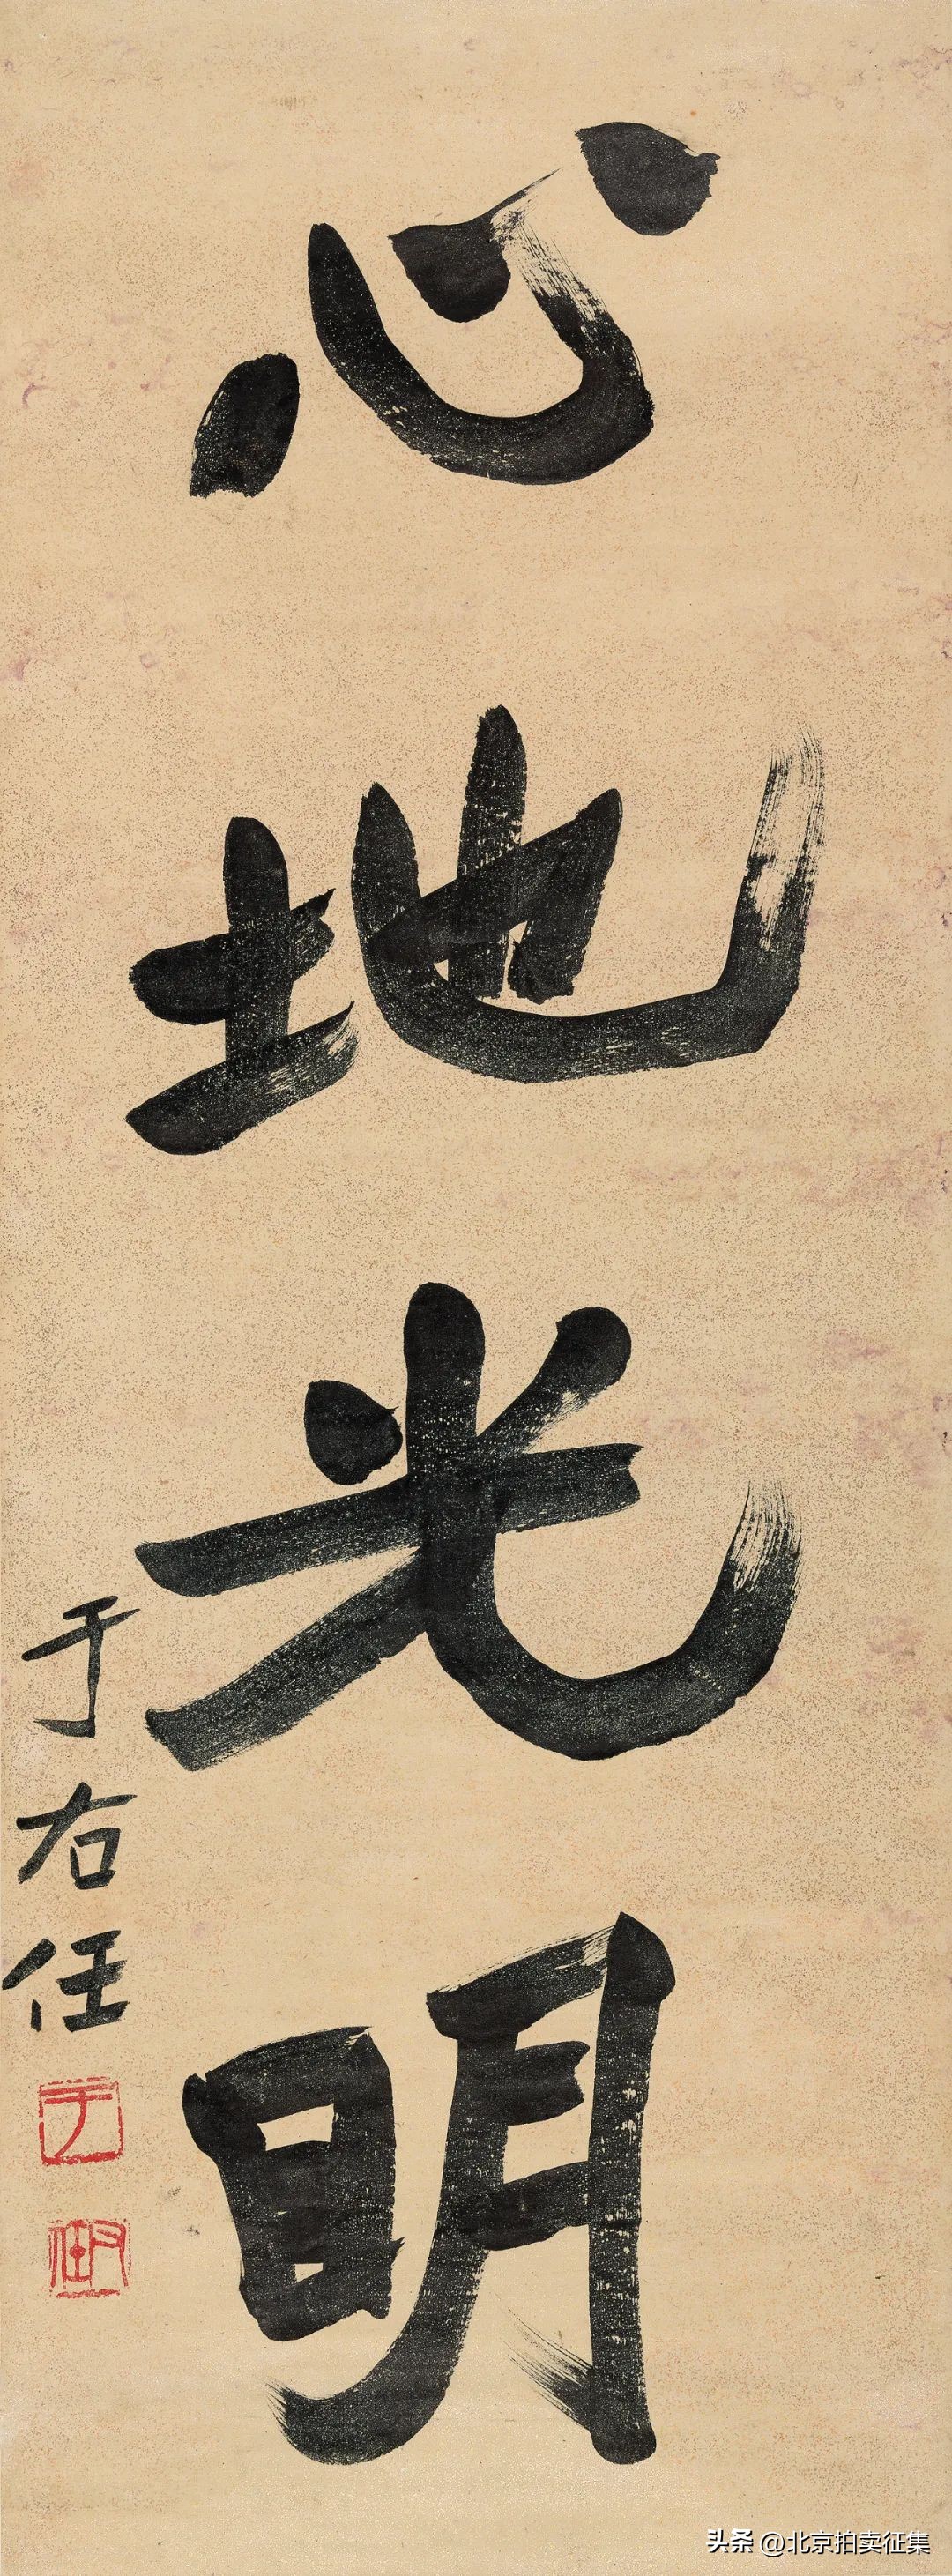 心地光明
于右任
于
右任
头条 @北京拍卖征集